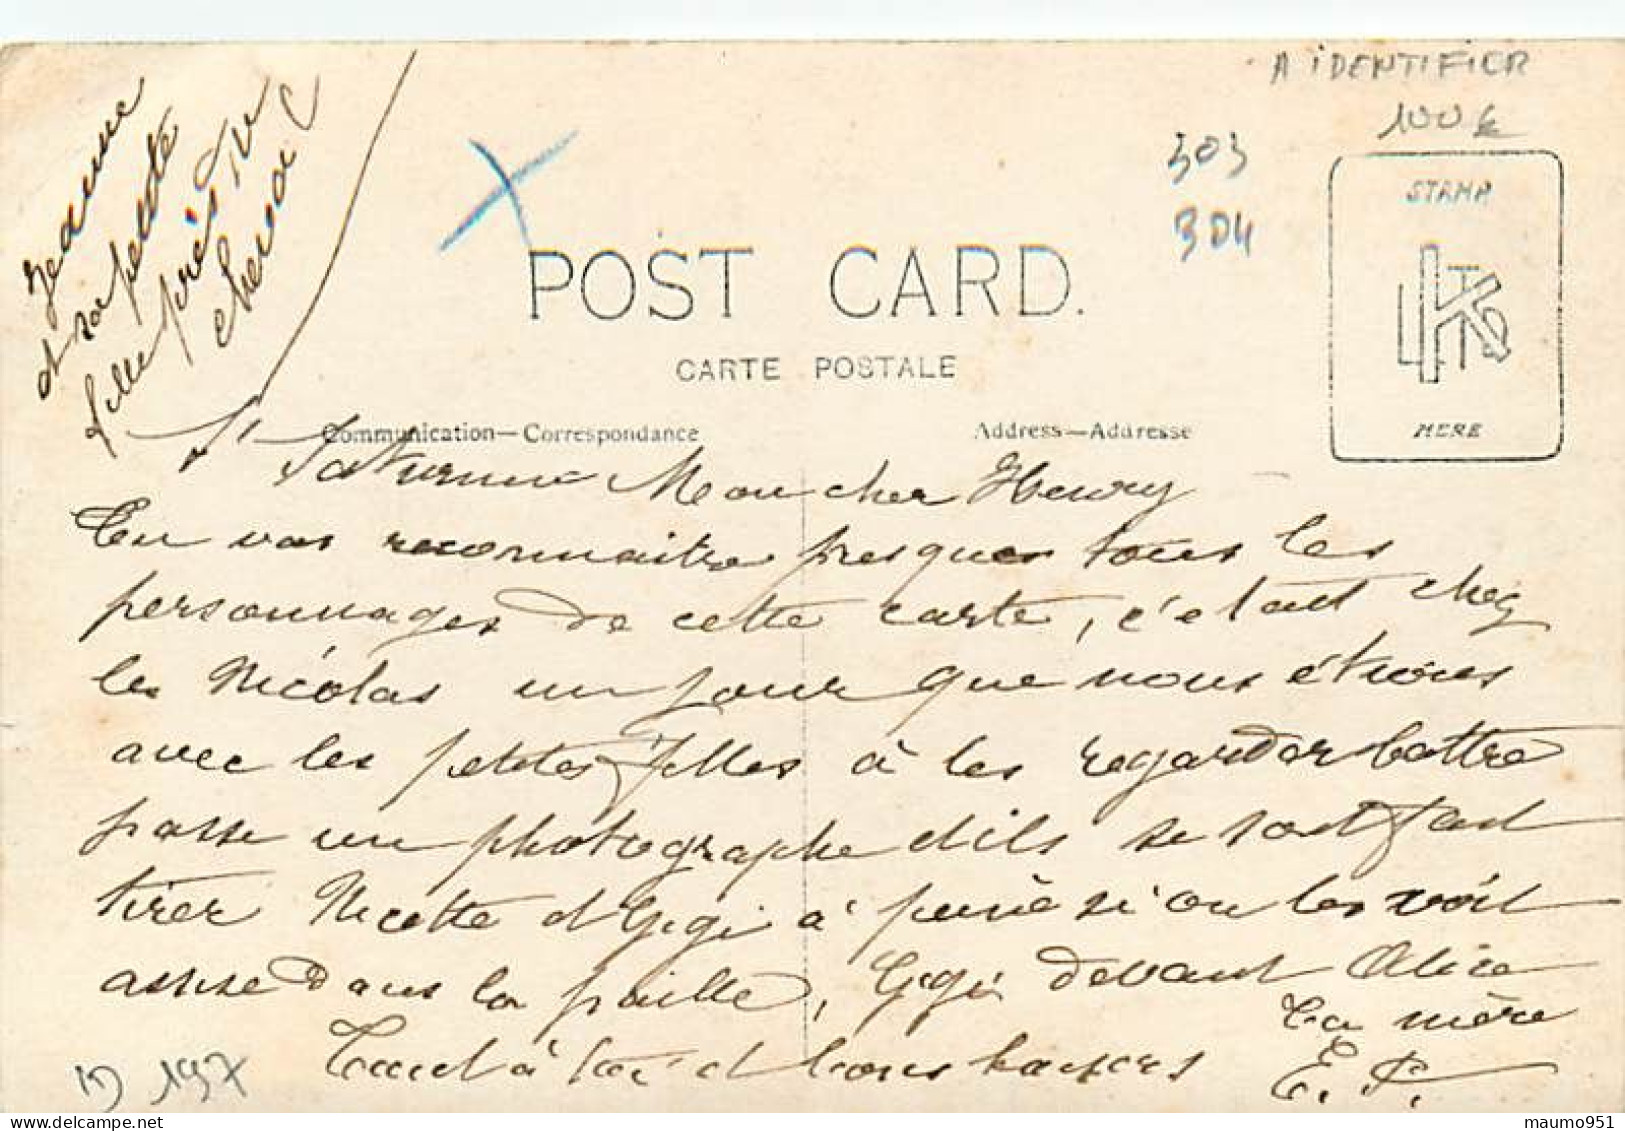 Jeanne
et sa petite
fille près du
cheval
A IDENTIFIER
100 €
303
304
STAMP
POST CARD.
CARTE POSTALE
Communication—Correspondance
Address—Addresse
HERE
St Saturnin Mon cher Henry
Tu vas reconnaitre presques tous les
personnages de cette carte, c'etait chez
les Nicolas un jour que nous étions
avec les petites filles à les regarder battre
passe un photographe et ils se sont fait
tirer Nicette et Gigi à peine si on les voit
assise dans la paille, Gigi devant Alice
Ta mère
Tout à toi et bons baisers
E. P.
197
maumo951